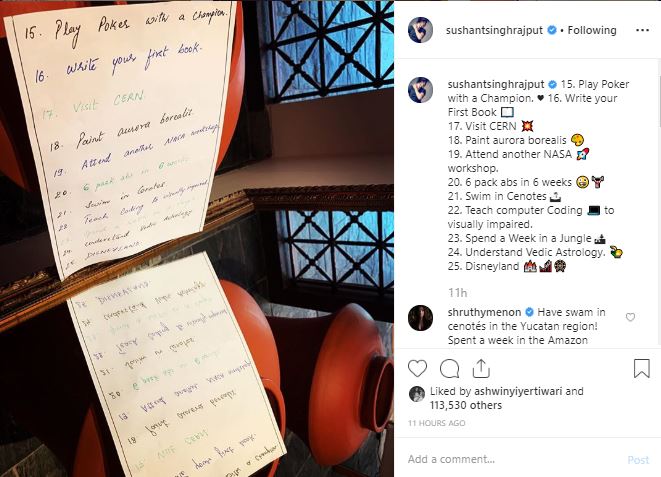 15. Play Poker with a Champion.
16. Write your first book.
17. Visit CERN.
18. Paint aurora borealis.
19. Attend another NASA workshop.
20. 6 pack abs in 6 weeks
21. Swim in Cenotes.
22. Teach Coding to visually impaired.
23. Spend a week in a
24. understand vedic astrology
25. DISNEYLAND.
sushantsinghrajput • Following
sushantsinghrajput 15. Play Poker
with a Champion. ♥ 16. Write your
First Book 📖
17. Visit CERN 💥
18. Paint aurora borealis 🎨
19. Attend another NASA 🚀
workshop.
20. 6 pack abs in 6 weeks
21. Swim in Cenotes
22. Teach computer Coding 💻 to
visually impaired.
23. Spend a Week in a Jungle
24. Understand Vedic Astrology.
25. Disneyland
11h
shruthymenon Have swam in
cenotés in the Yucatan region!
Spent a week in the Amazon
Liked by ashwinyiyertiwari and
113,530 others
11 HOURS AGO
Add a comment... Post